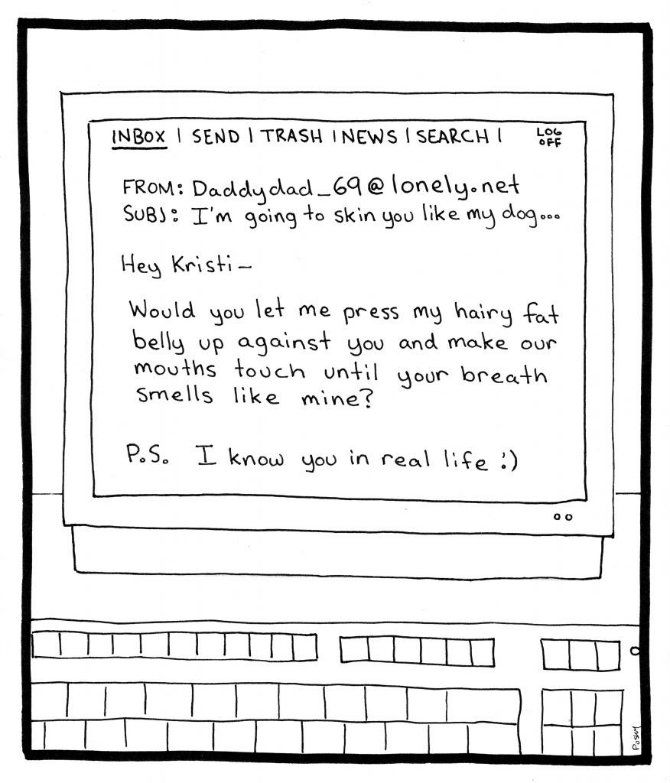 INBOX | SEND | TRASH | NEWS | SEARCH | LOG OFF
FROM: Daddydad_69@lonely.net
SUBJ: I'm going to skin you like my dog...
Hey Kristi –
Would you let me press my hairy fat
belly up against you and make our
mouths touch until your breath
smells like mine?
P.S. I know you in real life :')